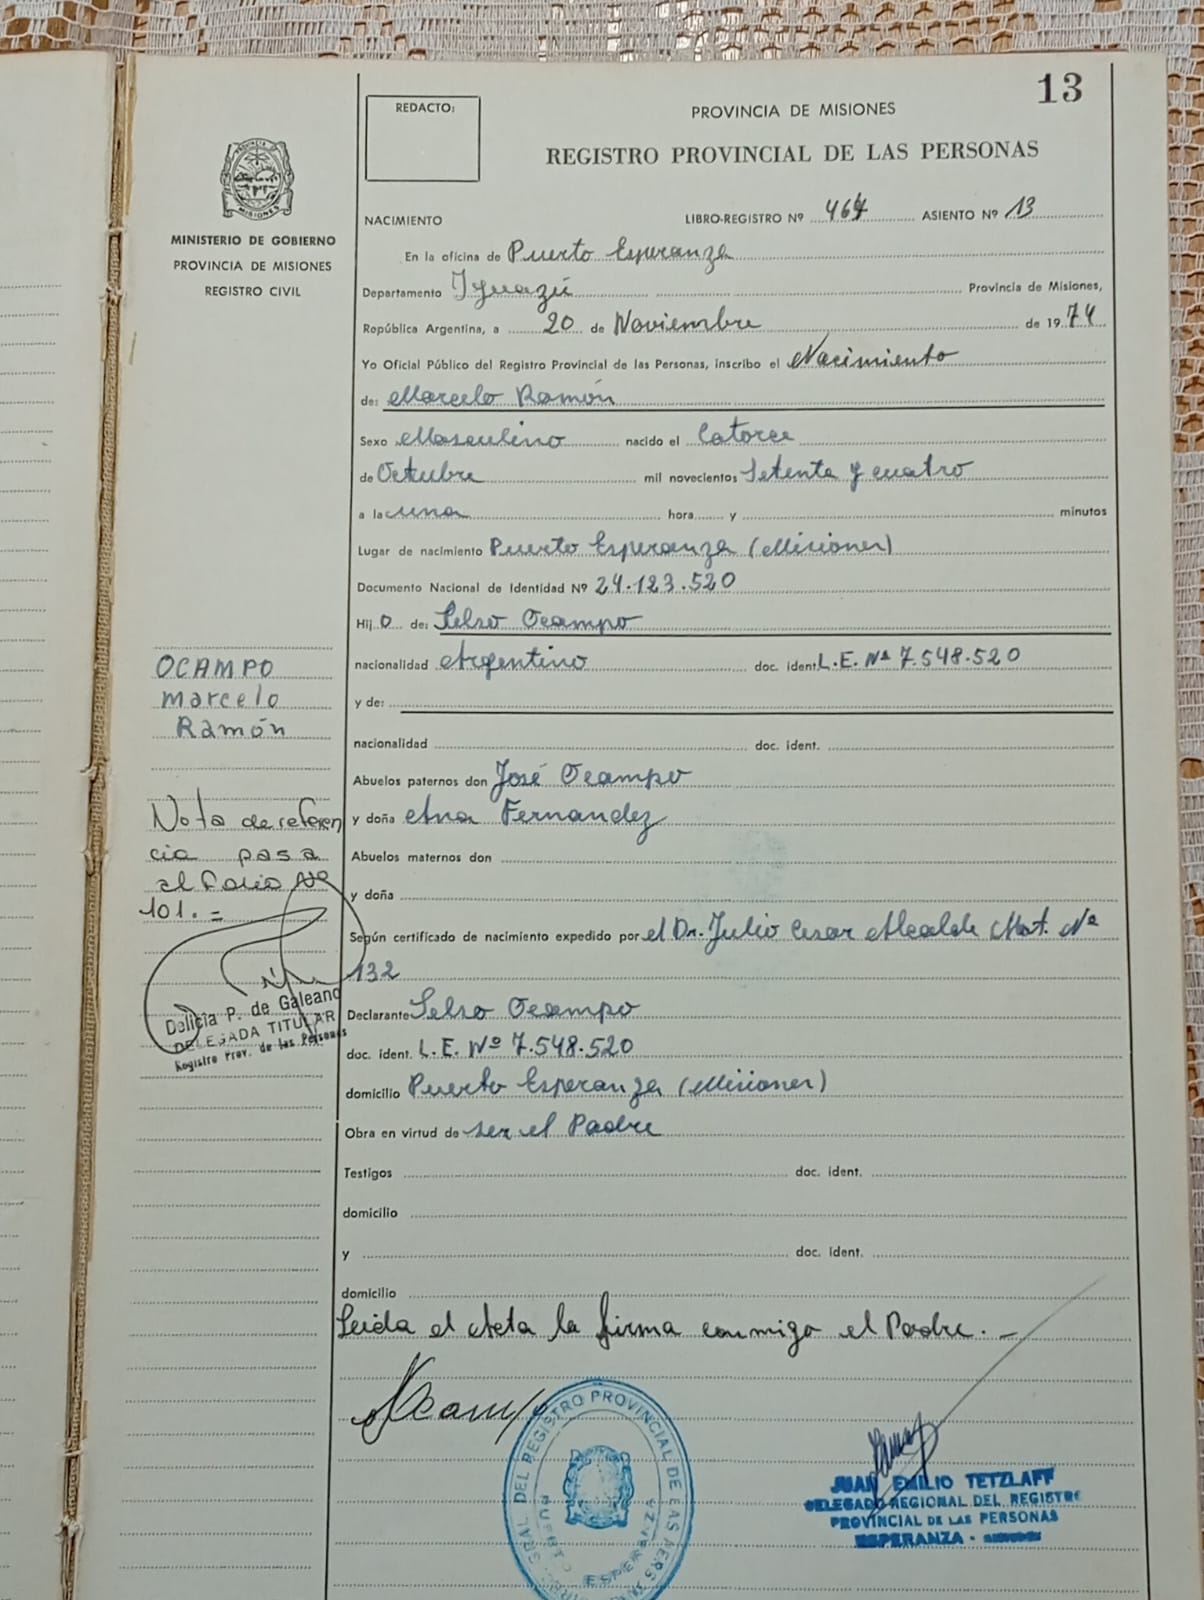 13
REDACTO:
PROVINCIA DE MISIONES
REGISTRO PROVINCIAL DE LAS PERSONAS
MISIONES
MINISTERIO DE GOBIERNO
PROVINCIA DE MISIONES
REGISTRO CIVIL
NACIMIENTO LIBRO-REGISTRO Nº 467 ASIENTO Nº 13
En la oficina de Puerto Esperanza
Departamento Iguazú Provincia de Misiones,
República Argentina, a 20 de Noviembre de 1974
Yo Oficial Público del Registro Provincial de las Personas, inscribo el Nacimiento
de: Marcelo Ramón
Sexo Masculino nacido el Catorce
de Octubre mil novecientos Setenta y cuatro
a la una hora y minutos
Lugar de nacimiento Puerto Esperanza (Misiones)
Documento Nacional de Identidad Nº 24.123.520
Hijo de: Selso Ocampo
nacionalidad Argentino doc. ident. L.E. Nº 7.548.520
y de:
nacionalidad doc. ident.
Abuelos paternos don José Ocampo
y doña Ana Fernandez
Abuelos maternos don
y doña
Según certificado de nacimiento expedido por el Dr. Julio Cesar Alcalde Mat. Nº
132
Declarante Selso Ocampo
doc. ident. L.E. Nº 7.548.520
domicilio Puerto Esperanza (Misiones)
Obra en virtud de ser el Padre
Testigos doc. ident.
domicilio
y doc. ident.
domicilio
Leida el Acta la firma conmigo el Padre. -
OCAMPO
Marcelo
Ramón
Nota de referen
cia pasa
al Folio Nº
101.=
Delicia P. de Galeano
DELEGADA TITULAR
Registro Prov. de las Personas
Ocampo
DEL REGISTRO PROVINCIAL DE LAS PERS
ESPERANZA
JUAN EMILIO TETZLAFF
DELEGADO REGIONAL DEL REGISTRO
PROVINCIAL DE LAS PERSONAS
ESPERANZA -